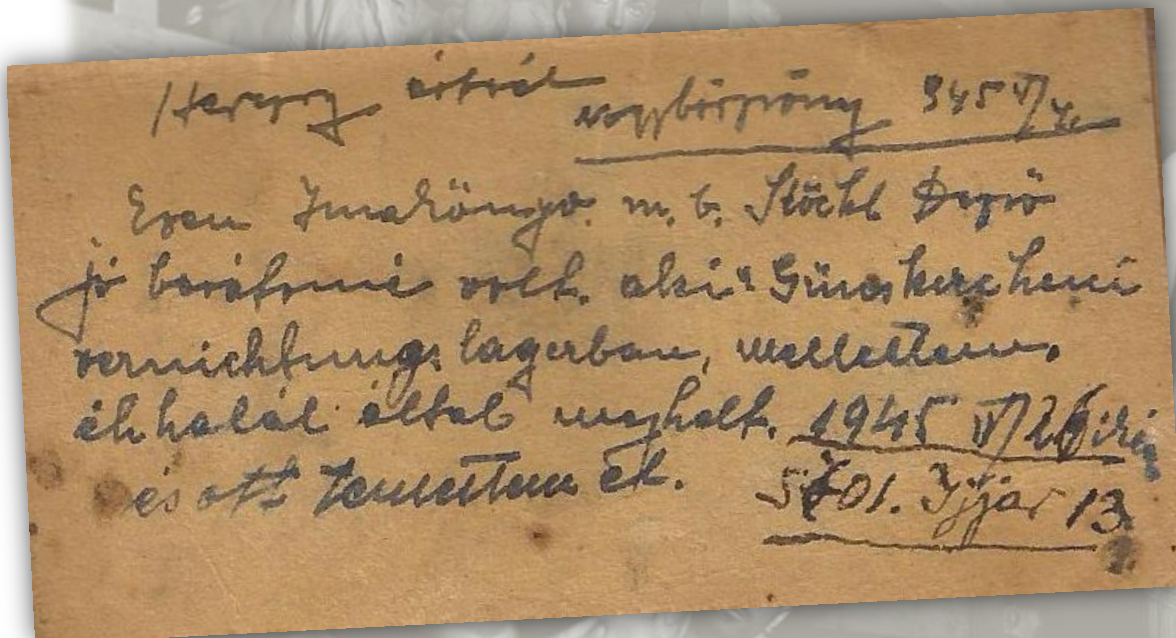 Herczog Árpád Nagybörzsöny 945 V/4.
Ezen Imakönyv. m. b. Stöckl Dezső
jó barátomé volt. aki a Günskircheni
vernichtungslagerban, mellettem,
éhhalál által meghalt. 1945 IV/26 ikán
és ott temettem el. 5701. Ijjar 13.